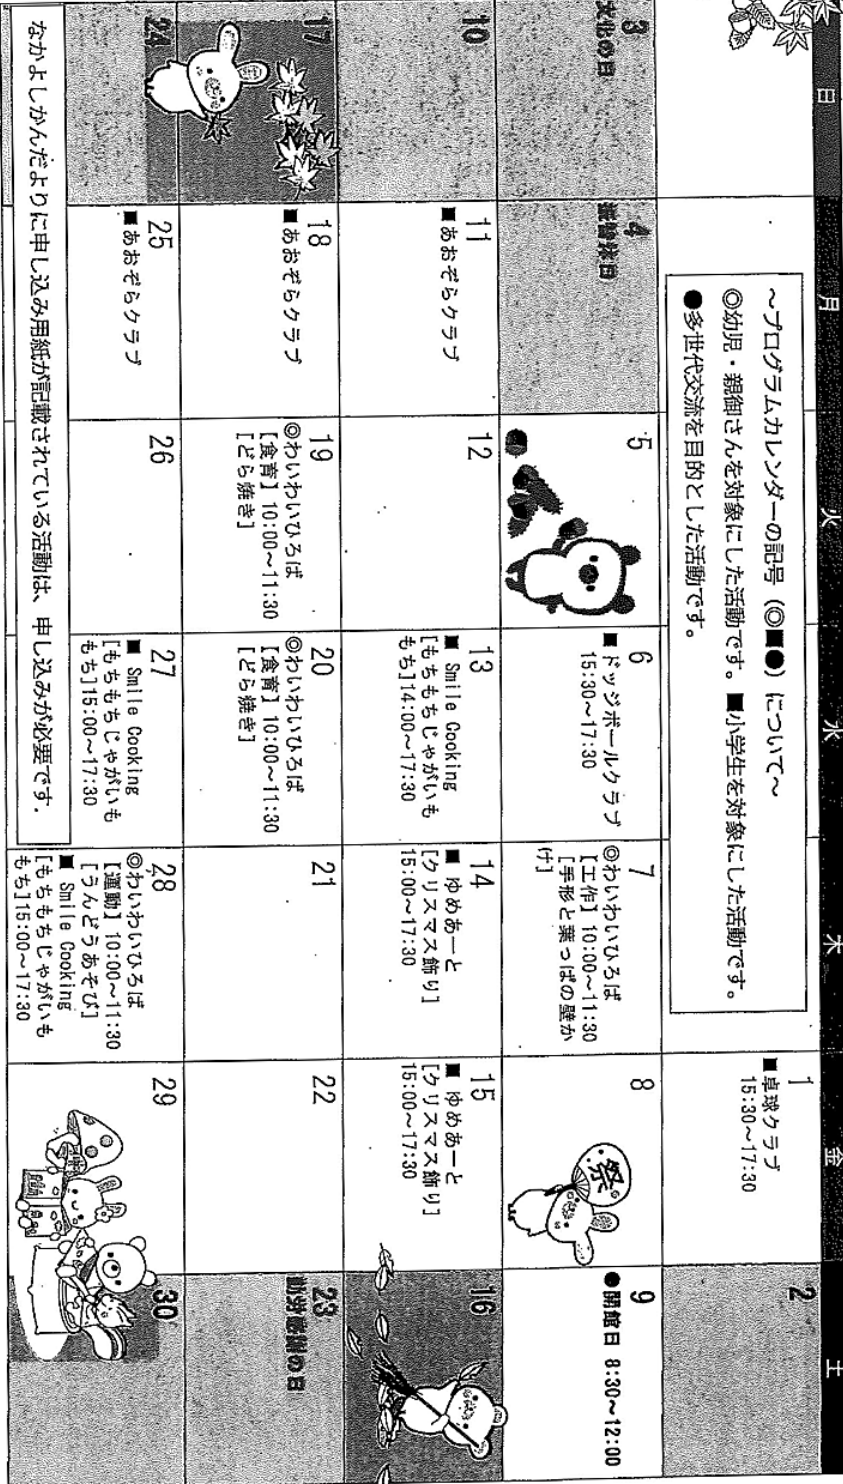 日 月 火 水 木 金 土
～プログラムカレンダーの記号（◎■●）について～
◎幼児・親御さんを対象にした活動です。■小学生を対象にした活動です。
●多世代交流を目的とした活動です。
1
■卓球クラブ
15:30～17:30
2
3
文化の日
4
振替休日
5
6
■ドッジボールクラブ
15:30～17:30
7
◎わいわいひろば
【工作】10:00～11:30
[手形と葉っぱの壁か
け]
8
祭
9
●開館日 8:30～12:00
10
11
■あおぞらクラブ
12
13
■ Smile Cooking
[もちもちじゃがいも
もち]14:00～17:30
14
■ ゆめあーと
[クリスマス飾り]
15:00～17:30
15
■ ゆめあーと
[クリスマス飾り]
15:00～17:30
16
17
18
■あおぞらクラブ
19
◎わいわいひろば
【食育】10:00～11:30
[どら焼き]
20
◎わいわいひろば
【食育】10:00～11:30
[どら焼き]
21
22
23
勤労感謝の日
24
25
■あおぞらクラブ
26
27
■ Smile Cooking
[もちもちじゃがいも
もち]15:00～17:30
28
◎わいわいひろば
【運動】10:00～11:30
[うんどうあそび]
■ Smile Cooking
[もちもちじゃがいも
もち]15:00～17:30
29
30
なかよしかんだよりに申し込み用紙が記載されている活動は、申し込みが必要です．